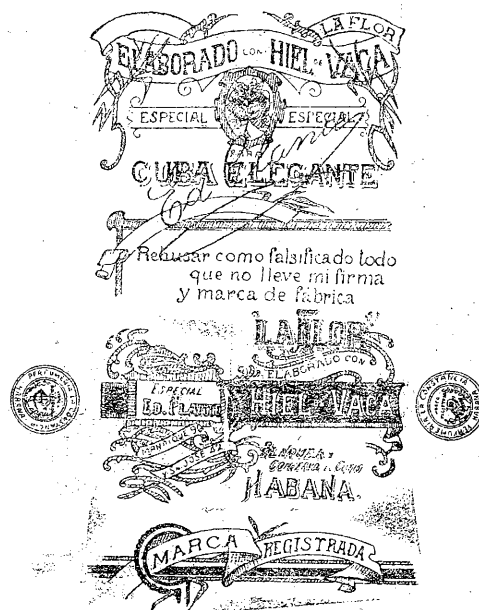 LA FLOR
ELABORADO CON HIEL DE VACA
ESPECIAL ESPECIAL
PARA
CUBA ELEGANTE
Rehusar como falsificado todo
que no lleve mi firma
y marca de fábrica
LA FLOR
ELABORADO CON
ESPECIAL
HIEL DE VACA
MANRIQUE
SAN JOSE
HABANA.
MARCA REGISTRADA